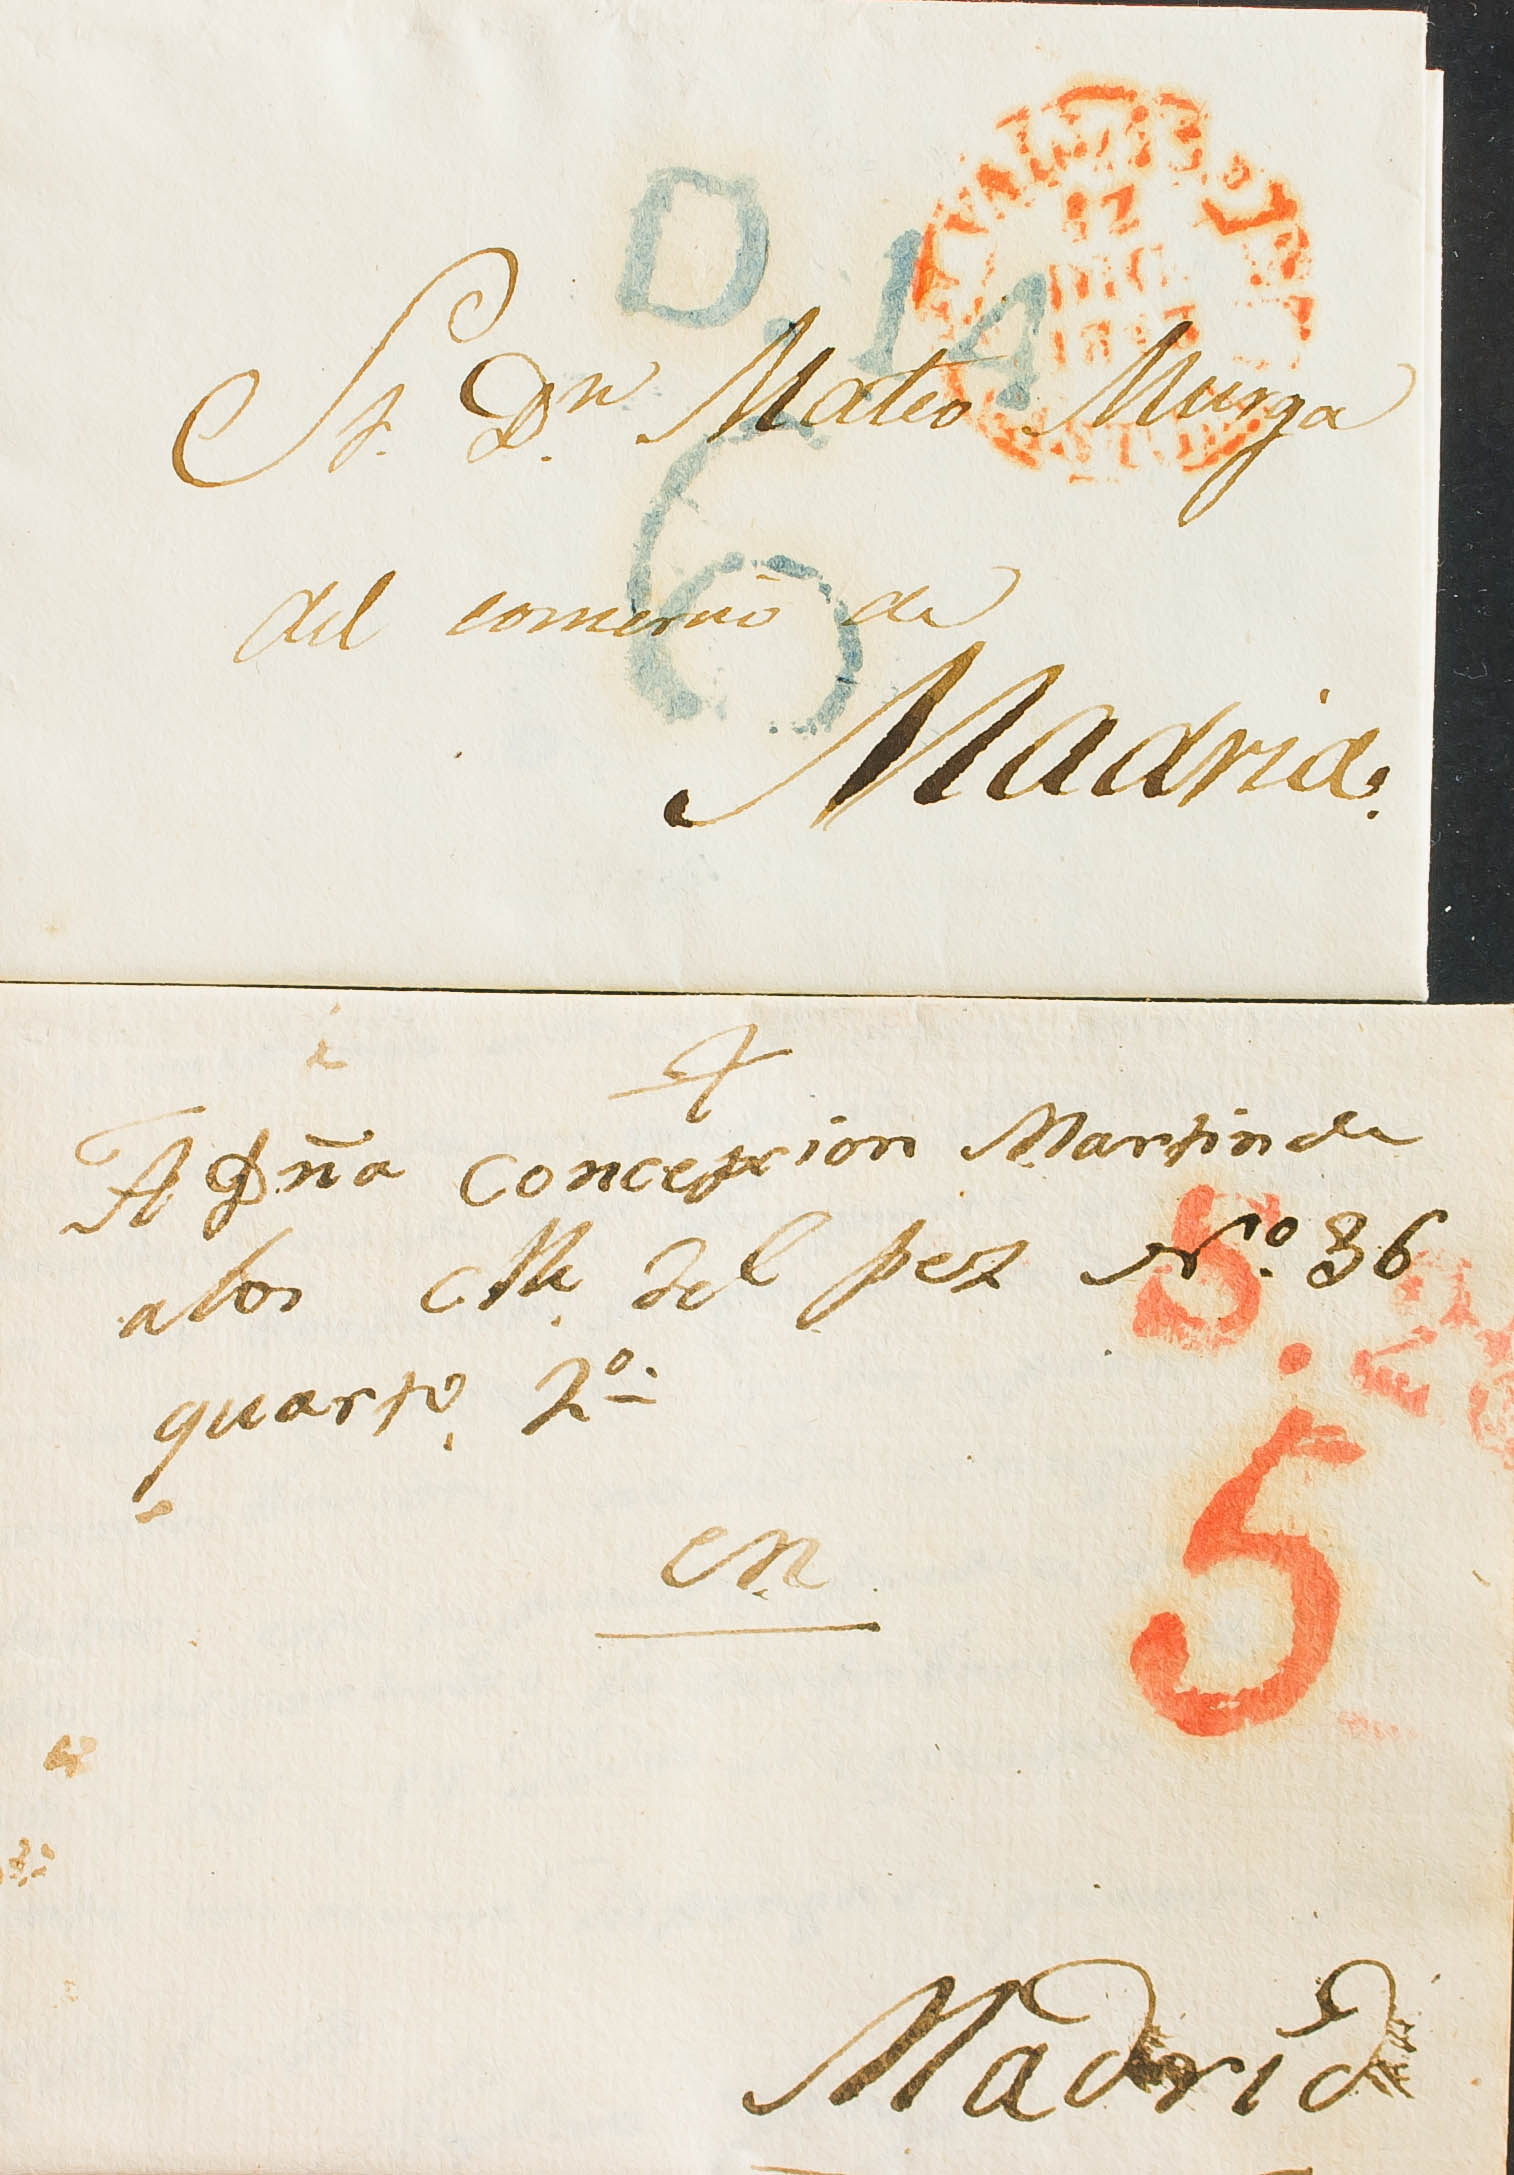 D. 14
Sr. Dn Mateo Murga
6
del comercio de
Madrid.
A Dña Concepcion Martin de
alos Clle del pez Nº. 36
quarto 2º.
5
en
Madrid